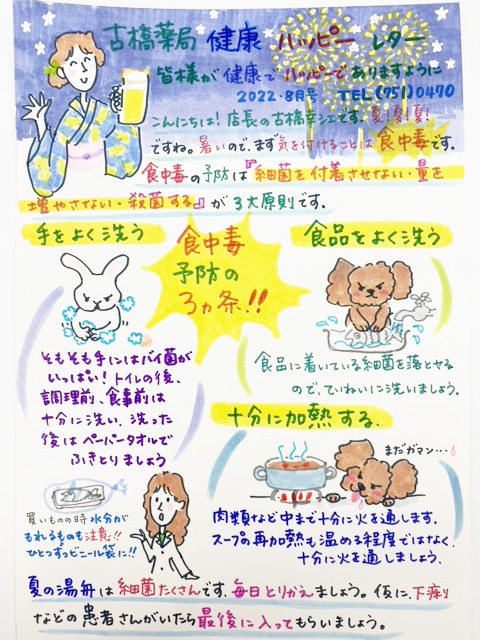 古橋薬局 健康 ハッピー レター
皆様が健康でハッピーでありますように
2022・8月号 TEL(751)0470
こんにちは!店長の古橋幸江です。夏!夏!夏!
ですね。暑いので、まず気を付けることは食中毒です。
食中毒の予防は『細菌を付着させない・量を
増やさない・殺菌する』が3大原則です。
手をよく洗う
食中毒
予防の
3ヵ条!!
食品をよく洗う
そもそも手にはバイ菌が
いっぱい!トイレの後、
調理前、食事前は
十分に洗い、洗った
後はペーパータオルで
ふきとりましょう
食品に着いている細菌を落とせる
ので、ていねいに洗いましょう。
十分に加熱する。
まだガマン…
肉類など中まで十分に火を通します。
スープの再加熱も温める程度ではなく、
十分に火を通しましょう。
買いものの時水分が
もれるものも注意!!
ひとつずつビニール袋に!!
夏の湯舟は細菌たくさんです、毎日とりかえましょう。仮に、下痢
などの患者さんがいたら最後に入ってもらいましょう。